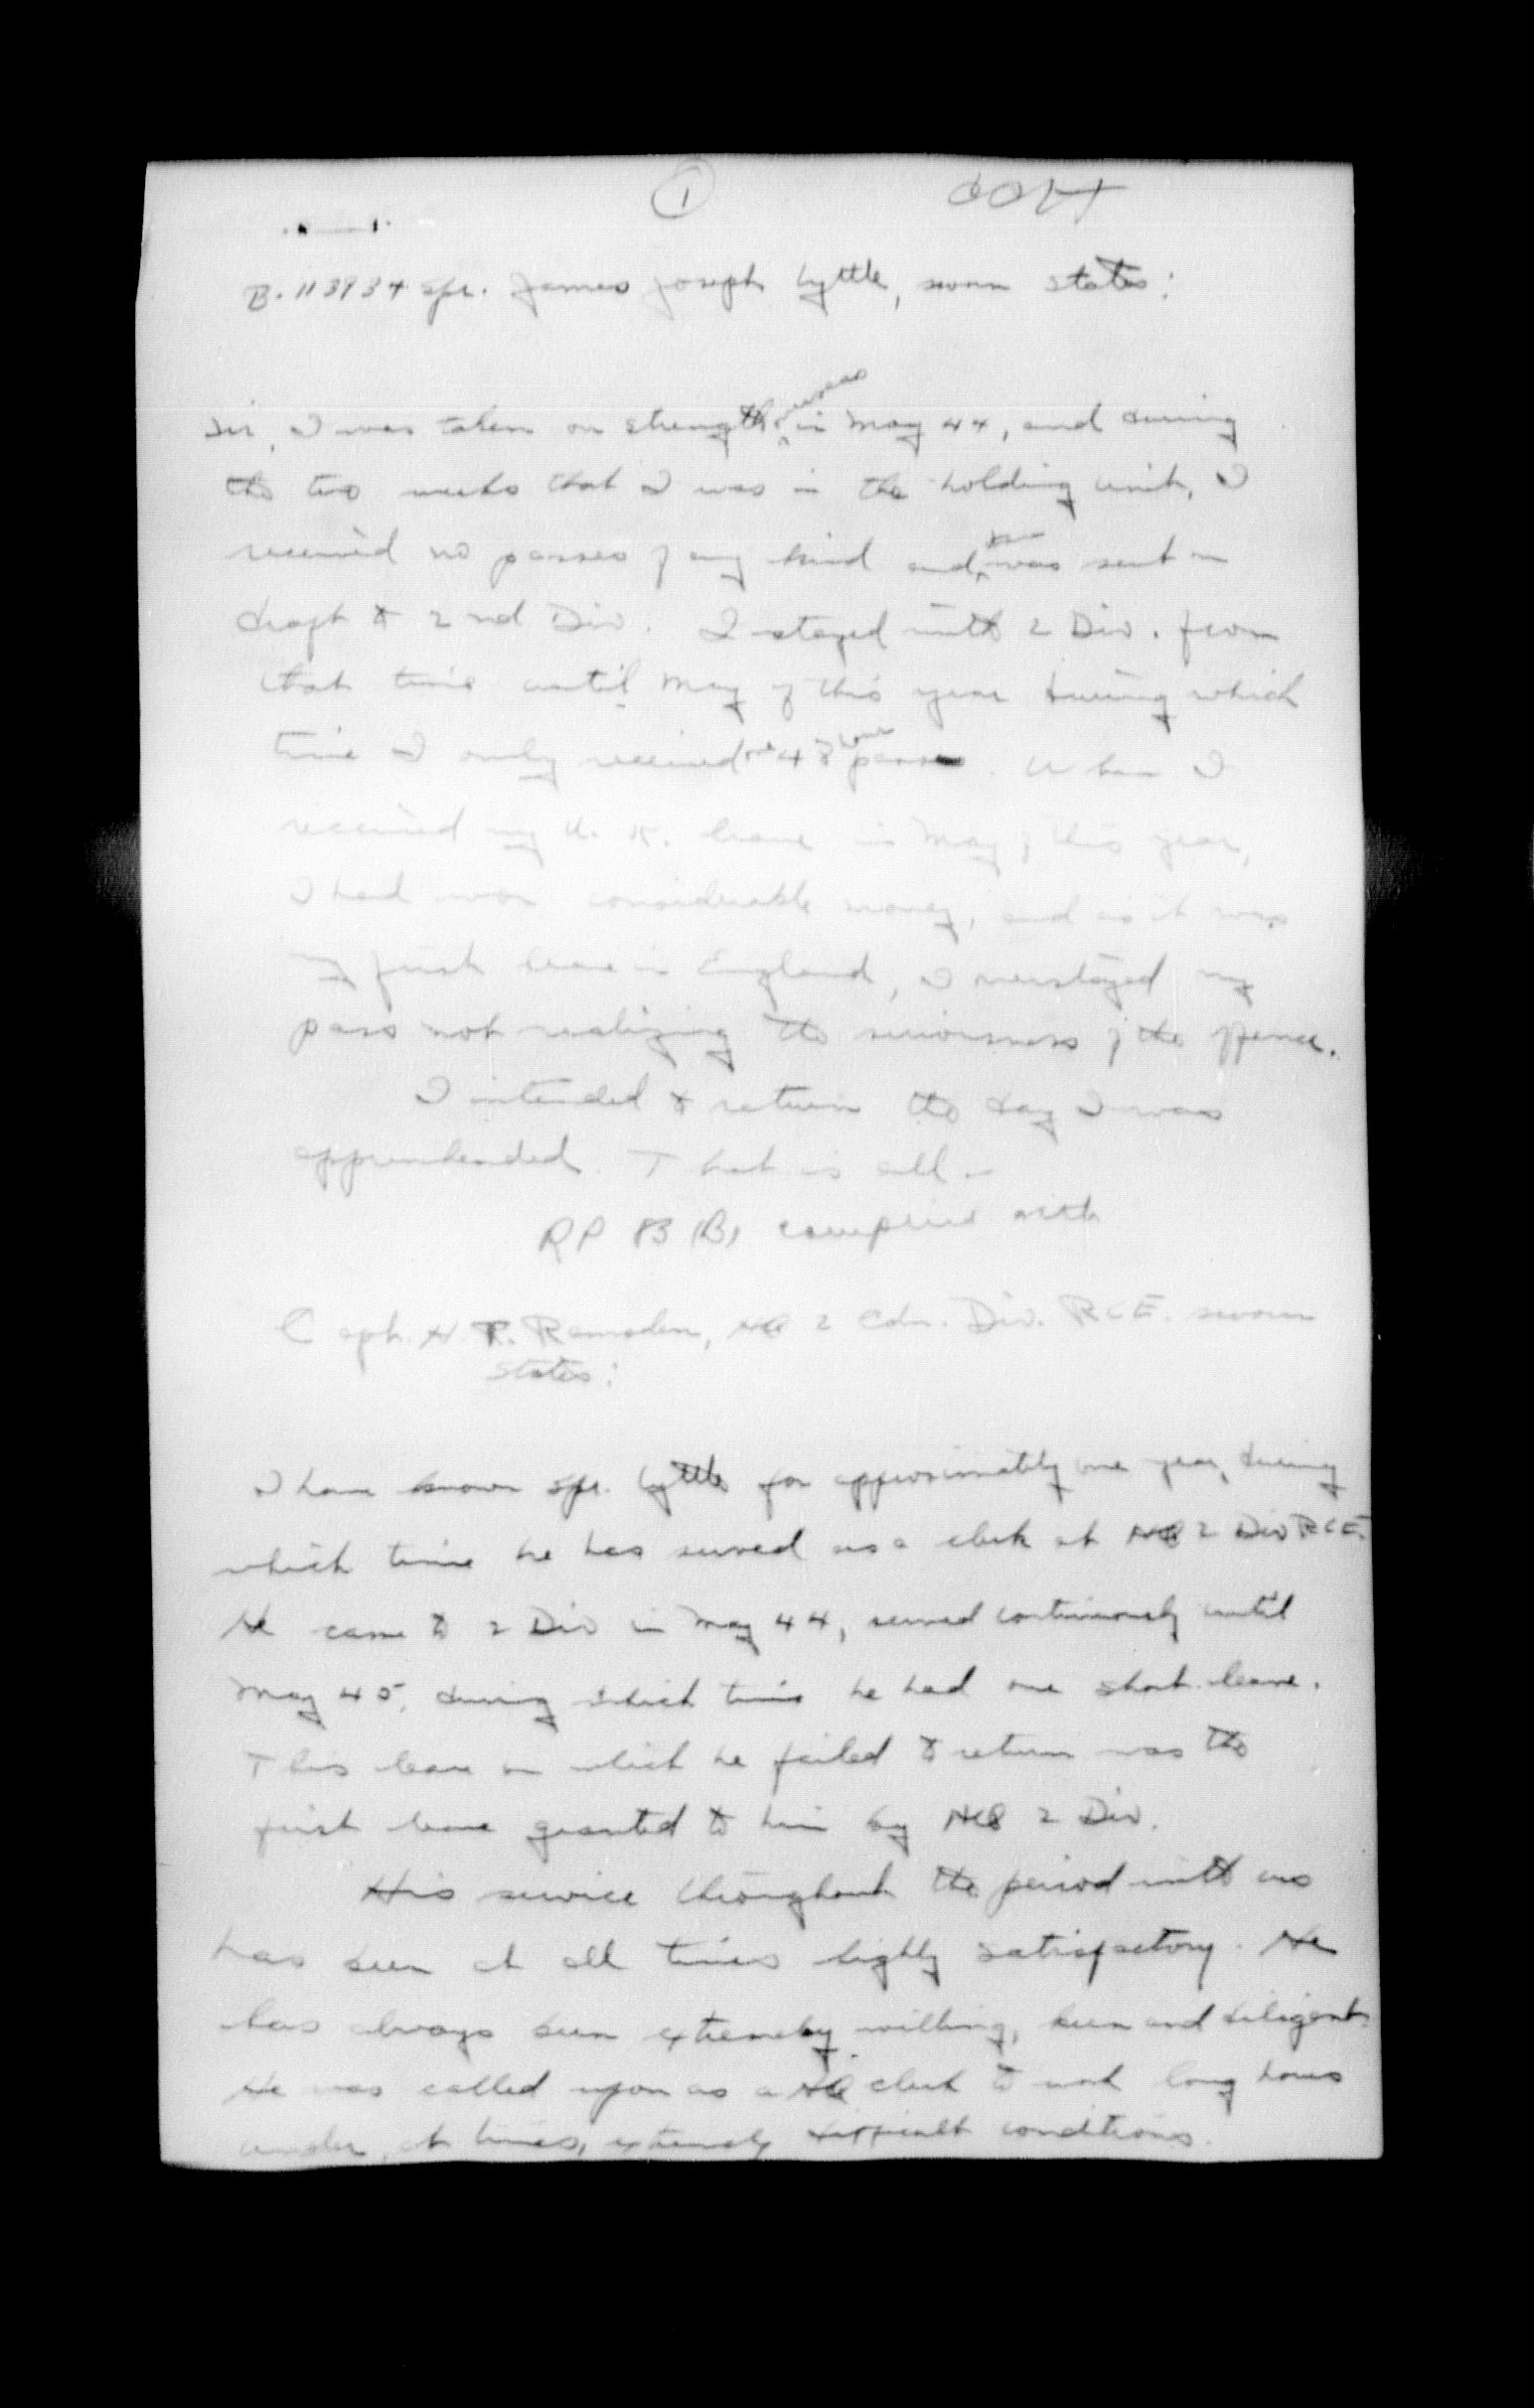 ①
B. 113934 Spr. James Joseph Lyttle, sworn states:
Sir, I was taken on strength overseas in May 44, and during
the two weeks that I was in the holding unit, I
received no passes of any kind and then was sent on
draft to 2nd Div. I stayed with 2 Div. from
that time until May of this year during which
time I only received one 48 hour pass. When I
received my U.K. leave in May of this year,
I had won considerable money, and as it was
my first leave in England, I overstayed my
pass not realizing the seriousness of the offence.
I intended to return the day I was
apprehended. That is all.
RP 83 (B) complied with
Capt. H. R. Ramsden, HQ 2 Cdn. Div. RCE. sworn
states:
I have known Spr. Lyttle for approximately one year, during
which time he has served as a clerk at HQ 2 Div RCE.
He came to 2 Div in May 44, served continuously until
May 45, during which time he had one short leave.
This leave on which he failed to return was the
first leave granted to him by HQ 2 Div.
His service throughout the period with us
has been at all times highly satisfactory. He
has always been extremely willing, keen and diligent.
He was called upon as a HQ clerk to work long hours
under, at times, extremely difficult conditions.